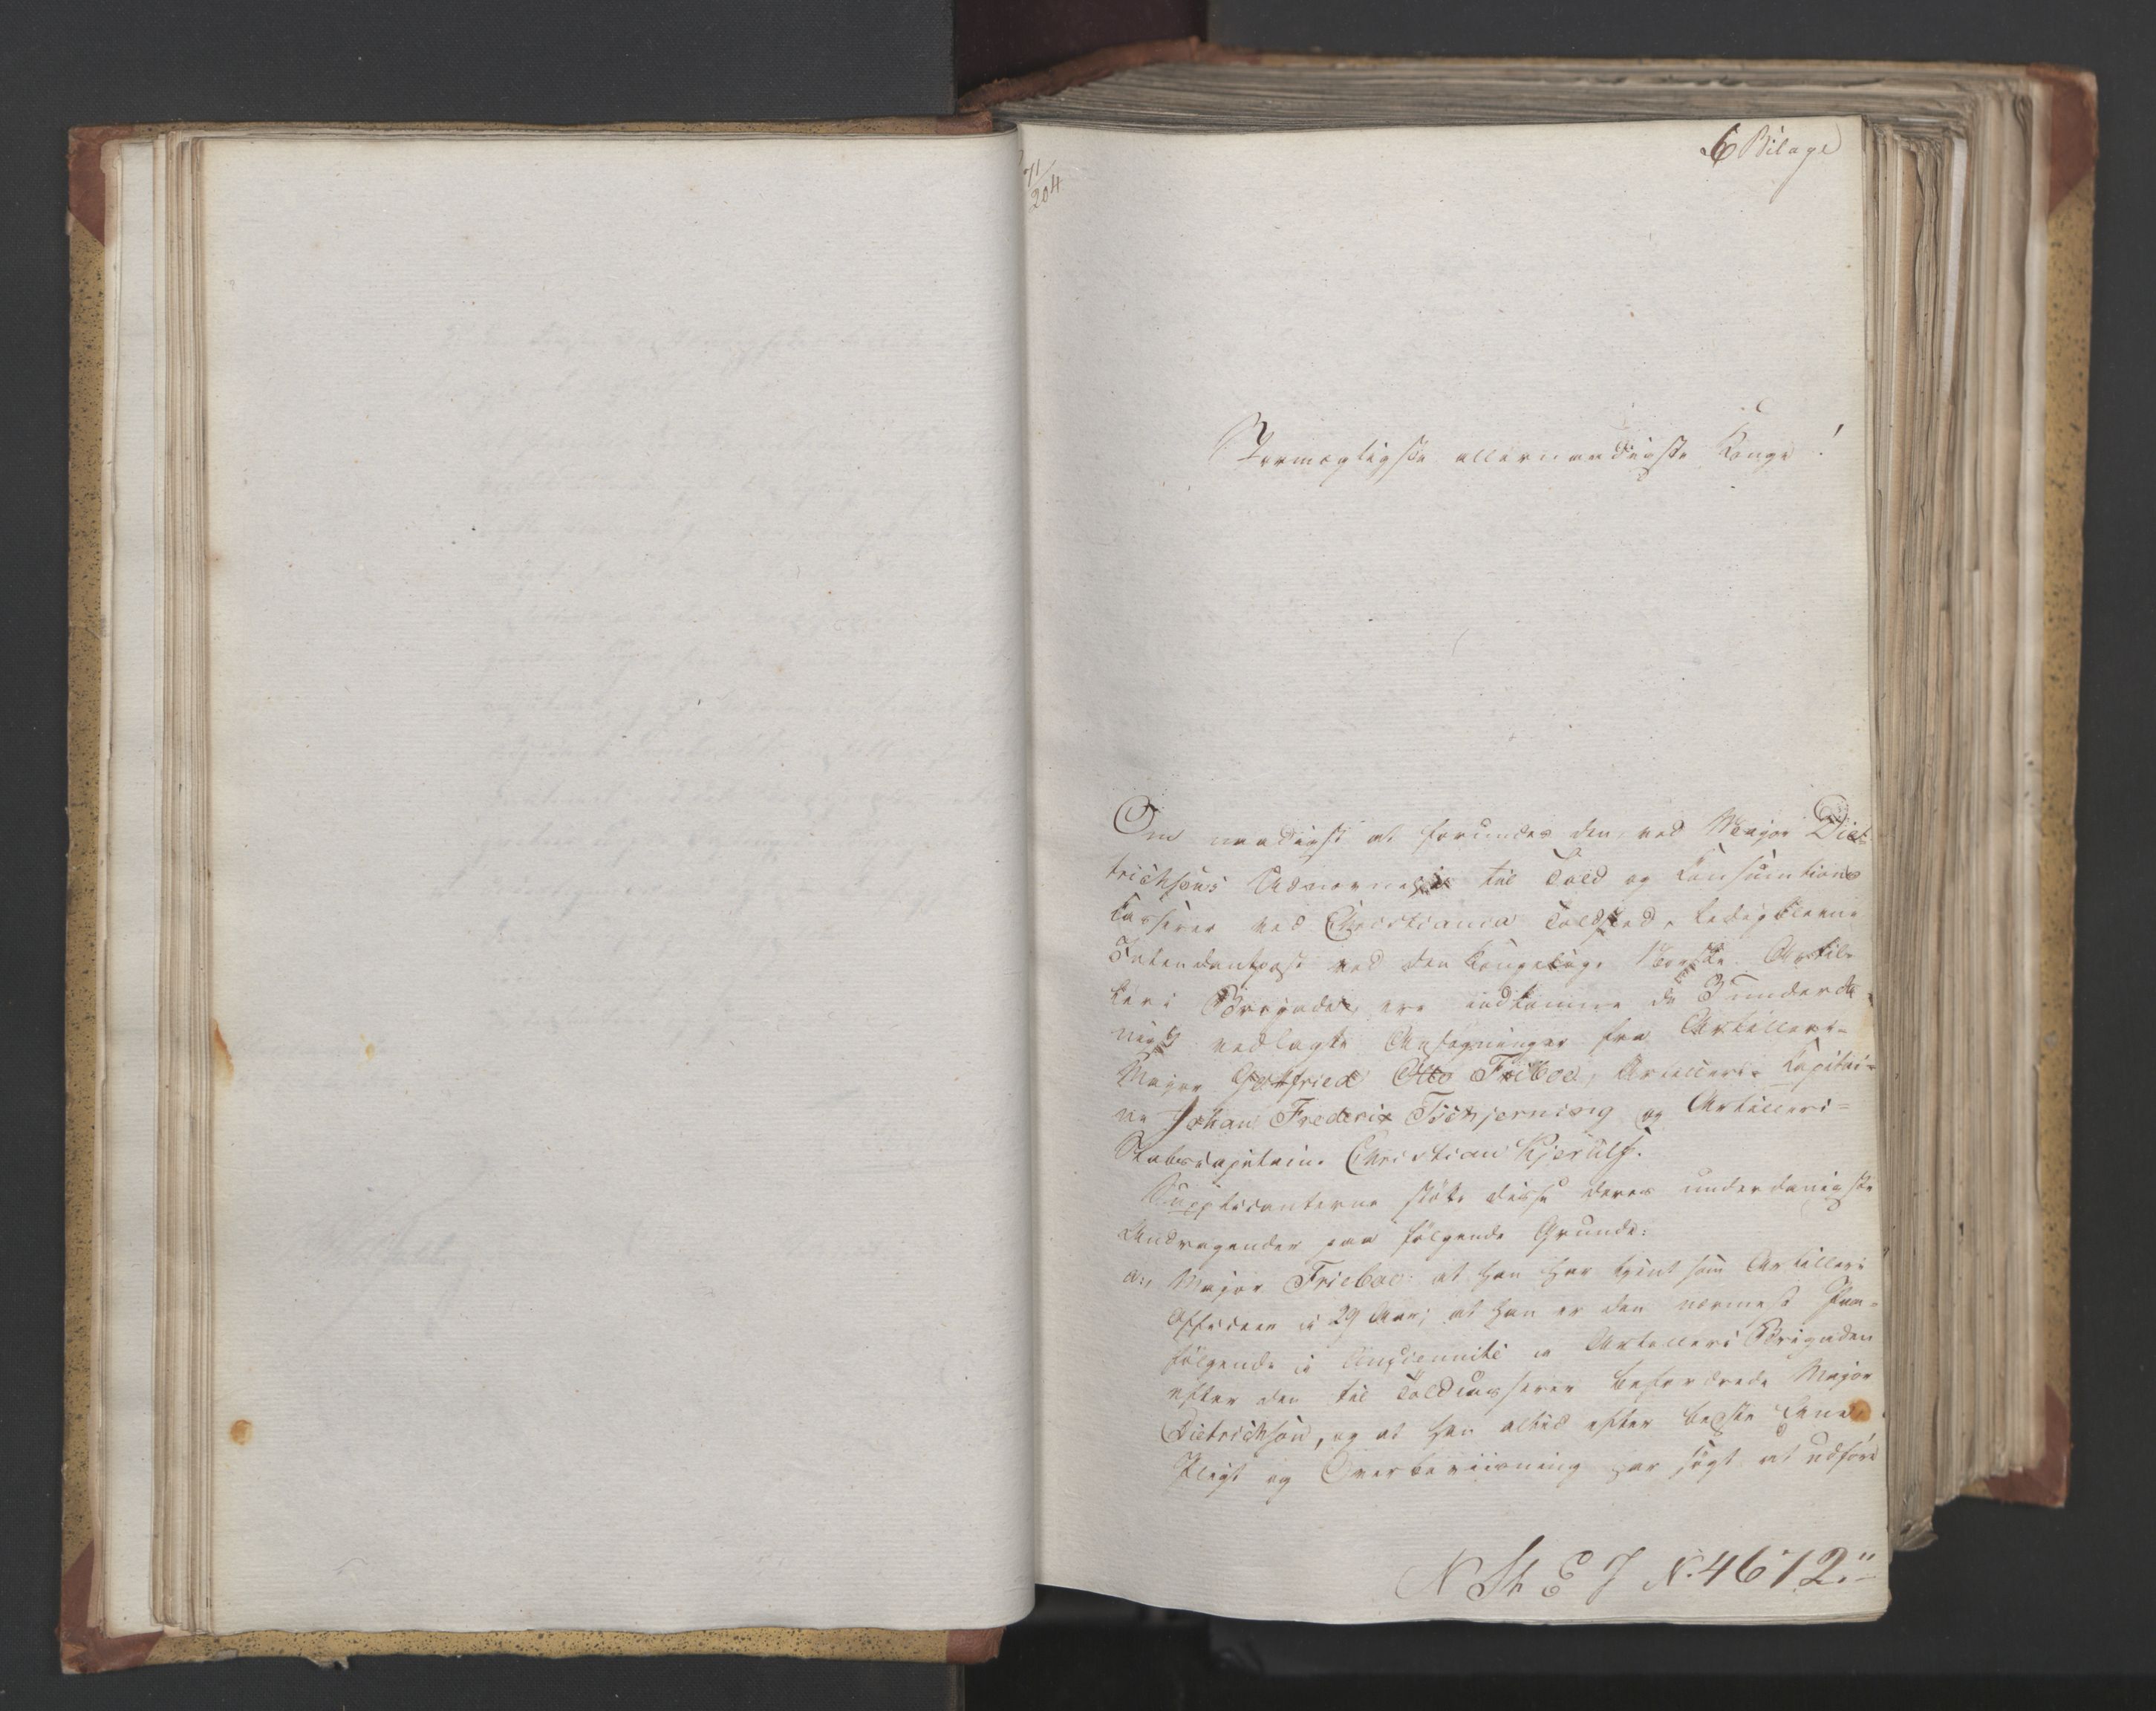 6 Bilage
71/204
Stormægtigste allernaadigste Konge!
Om naadigst at forundes den, ved Major Diet-
trichsons Udnævnelse til Told og Konsumtions
Kasserer ved Christiania Toldsted, ledigblevne
Intendantpost ved den kongelige Norske Artil-
leri Brigade, ere indkomne de 3 underda-
nigst vedlagte Ansøgninger fra Artilleri-
Major Gotfried Otto Frieboe, Artilleri-Kapitai-
ne Johan Frederix Tschjerning og Artilleri-
Stabscapitaine Christian Kjerulf.
Supplicanterne støtte disse deres underdanigste
Andragender paa følgende Grunde:
a., Major Frieboe: at han har tjent som Artilleri
Officeer i 29 Aar; at han er den nærmest Paa-
følgende i Anciennité i Artilleri Brigaden
efter den til Toldkasserer befordrede Major
Dietrichson, og at han altid efter bedste Evne,
Pligt og Overbeviisning har søgt at udføre
N St E J N. 4672.